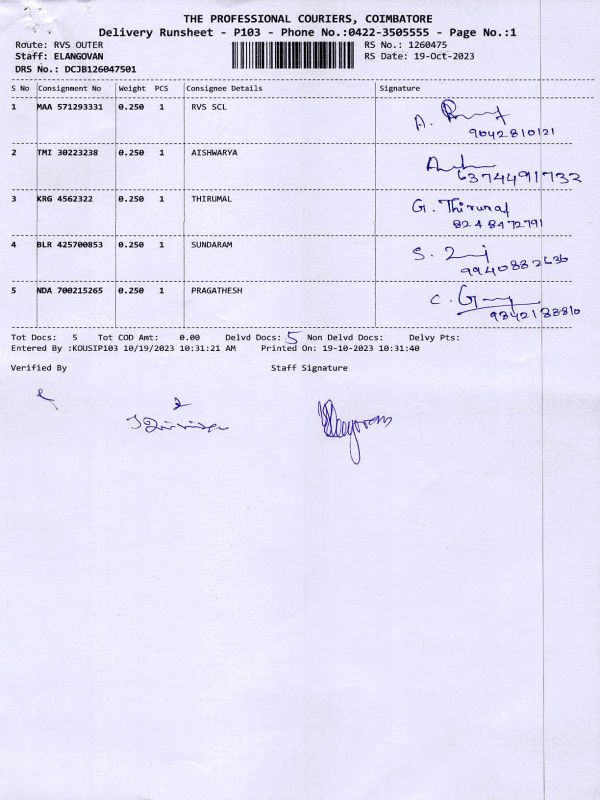 THE PROFESSIONAL COURIERS, COIMBATORE
Delivery Runsheet - P103 - Phone No.:0422-3505555 - Page No.:1
Route: RVS OUTER RS No.: 1260475
Staff: ELANGOVAN RS Date: 19-Oct-2023
DRS No.: DCJB126047501
S No Consignment No Weight PCS Consignee Details Signature
1 MAA 571293331 0.250 1 RVS SCL A.
9042810121
2 TMI 30223238 0.250 1 AISHWARYA
6374491732
3 KRG 4562322 0.250 1 THIRUMAL G. Thirumal
8248472791
4 BLR 425700853 0.250 1 SUNDARAM S.
9940882636
5 NDA 700215265 0.250 1 PRAGATHESH C.
9842183810
Tot Docs: 5 Tot COD Amt: 0.00 Delvd Docs: 5 Non Delvd Docs: Delvy Pts:
Entered By :KOUSIP103 10/19/2023 10:31:21 AM Printed On: 19-10-2023 10:31:40
Verified By Staff Signature
Elangovan